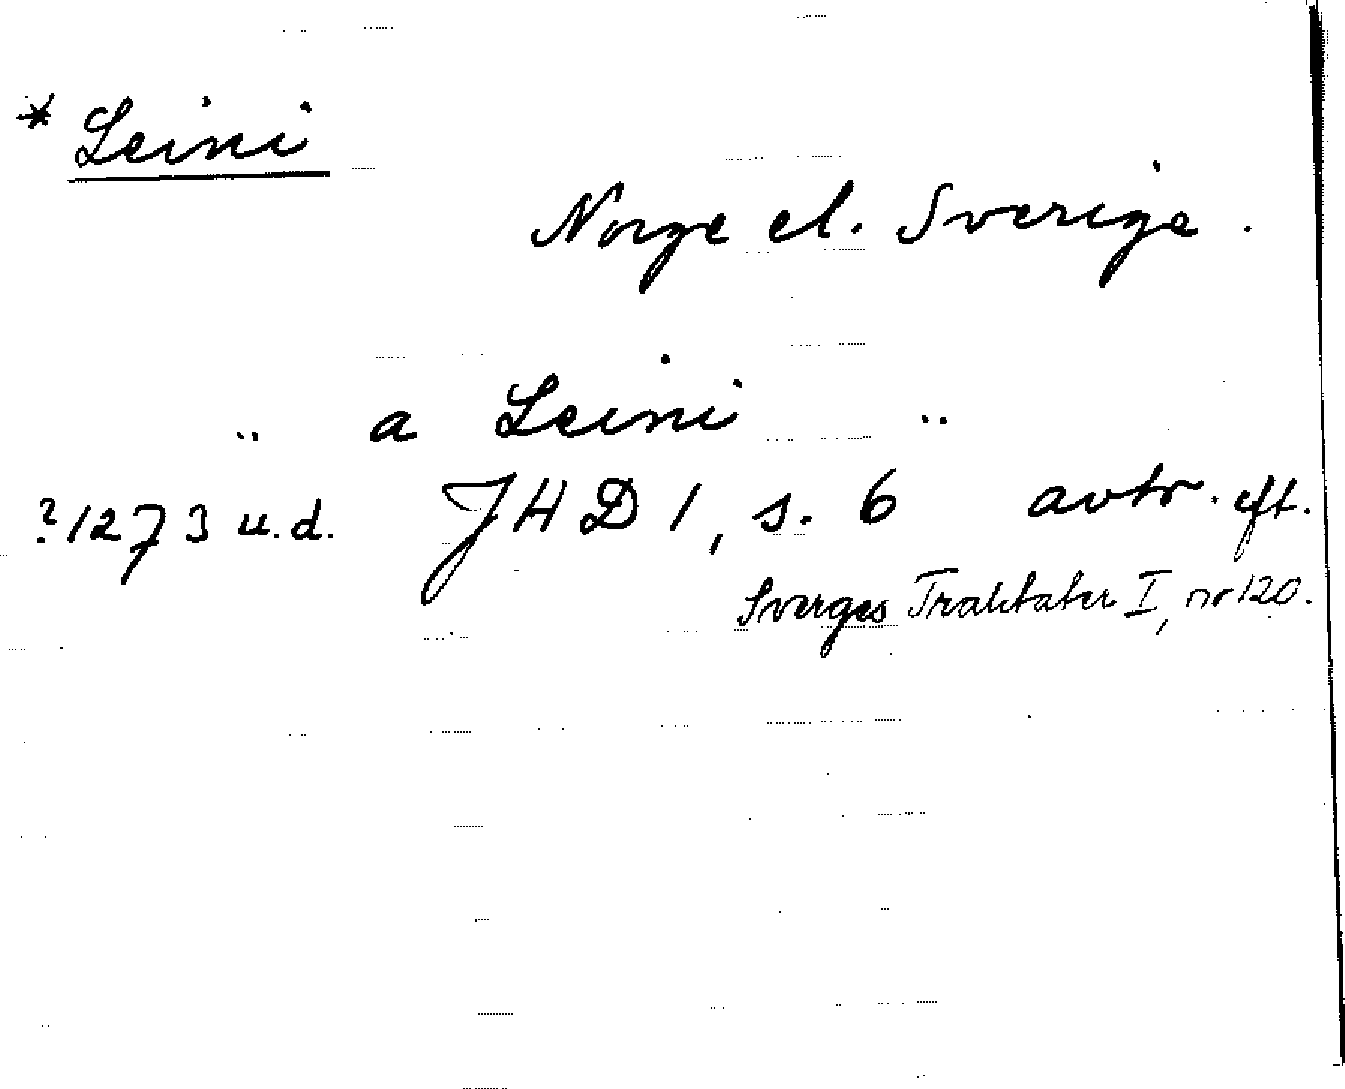 * Leini
Norge el. Sverige.
" a Leini "
?1273 u.d. JHD 1, s. 6 avtr. eft.
Sverges Traktater I, nr 120.